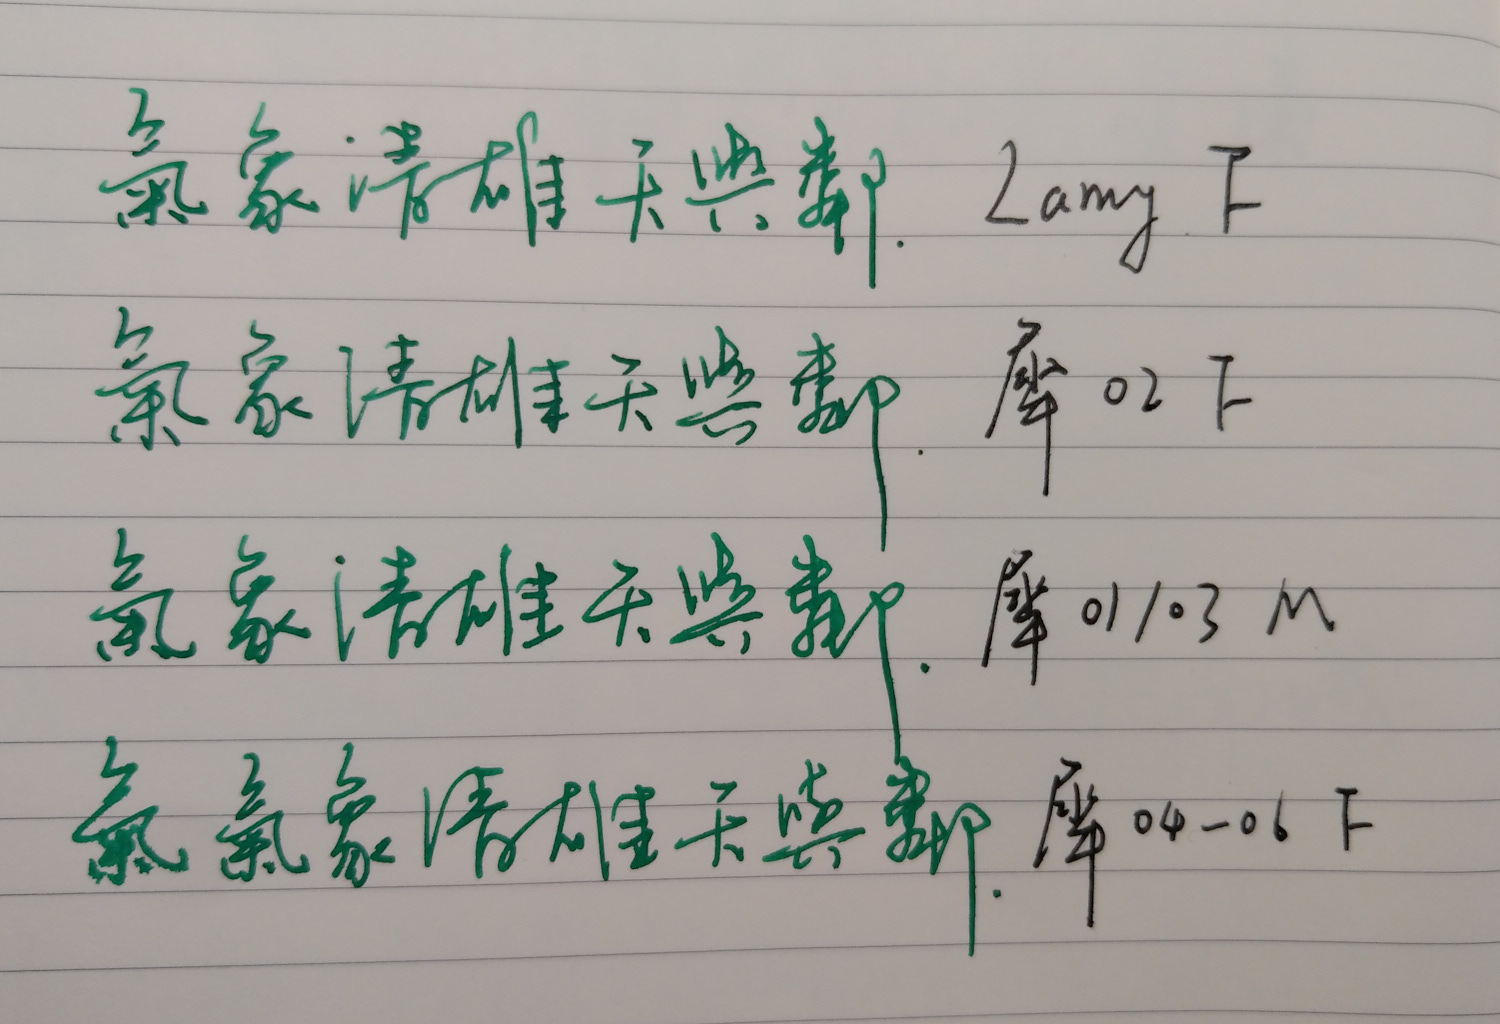 氣象清雄天與鄰. Lamy F
氣象清雄天與鄰. 犀 02 F
氣象清雄天與鄰. 犀 01/03 M
氣氣象清雄天與鄰. 犀 04-06 F